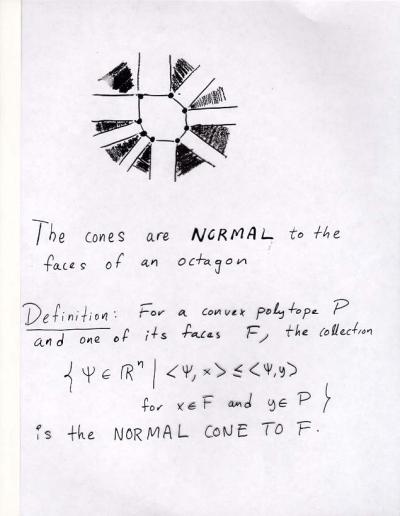 The cones are NORMAL to the
faces of an octagon
Definition: For a convex polytope P
and one of its faces F, the collection
{ Ψ ∈ ℝⁿ | <Ψ, x> ≤ <Ψ, y>
for x ∈ F and y ∈ P }
is the NORMAL CONE TO F.